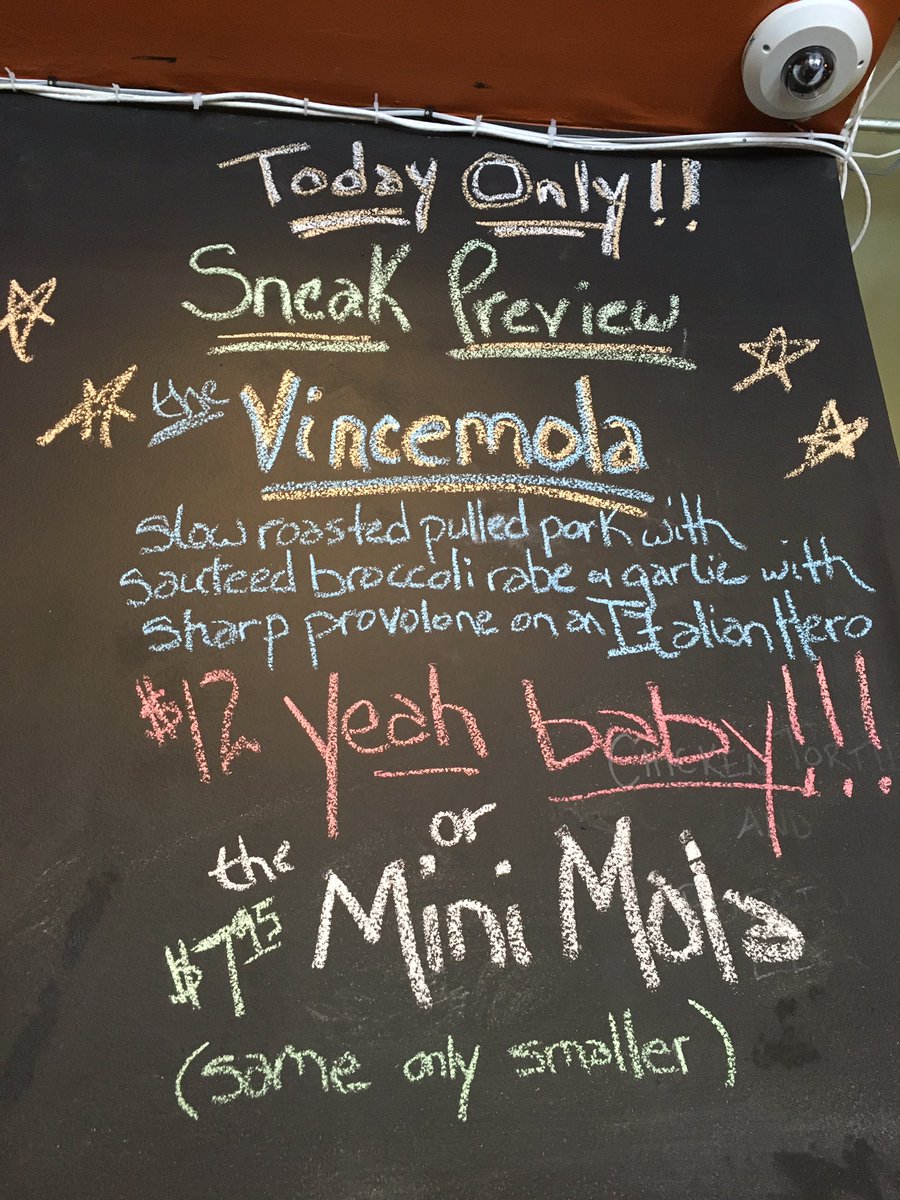 Today Only!!
Sneak Preview
the Vincemola
slow roasted pulled pork with
sauteed broccoli rabe & garlic with
sharp provolone on an Italian Hero
$12 yeah baby!!!
CHICKEN TORT
AND
or
the Mini Mola
$7.95
(same only smaller)